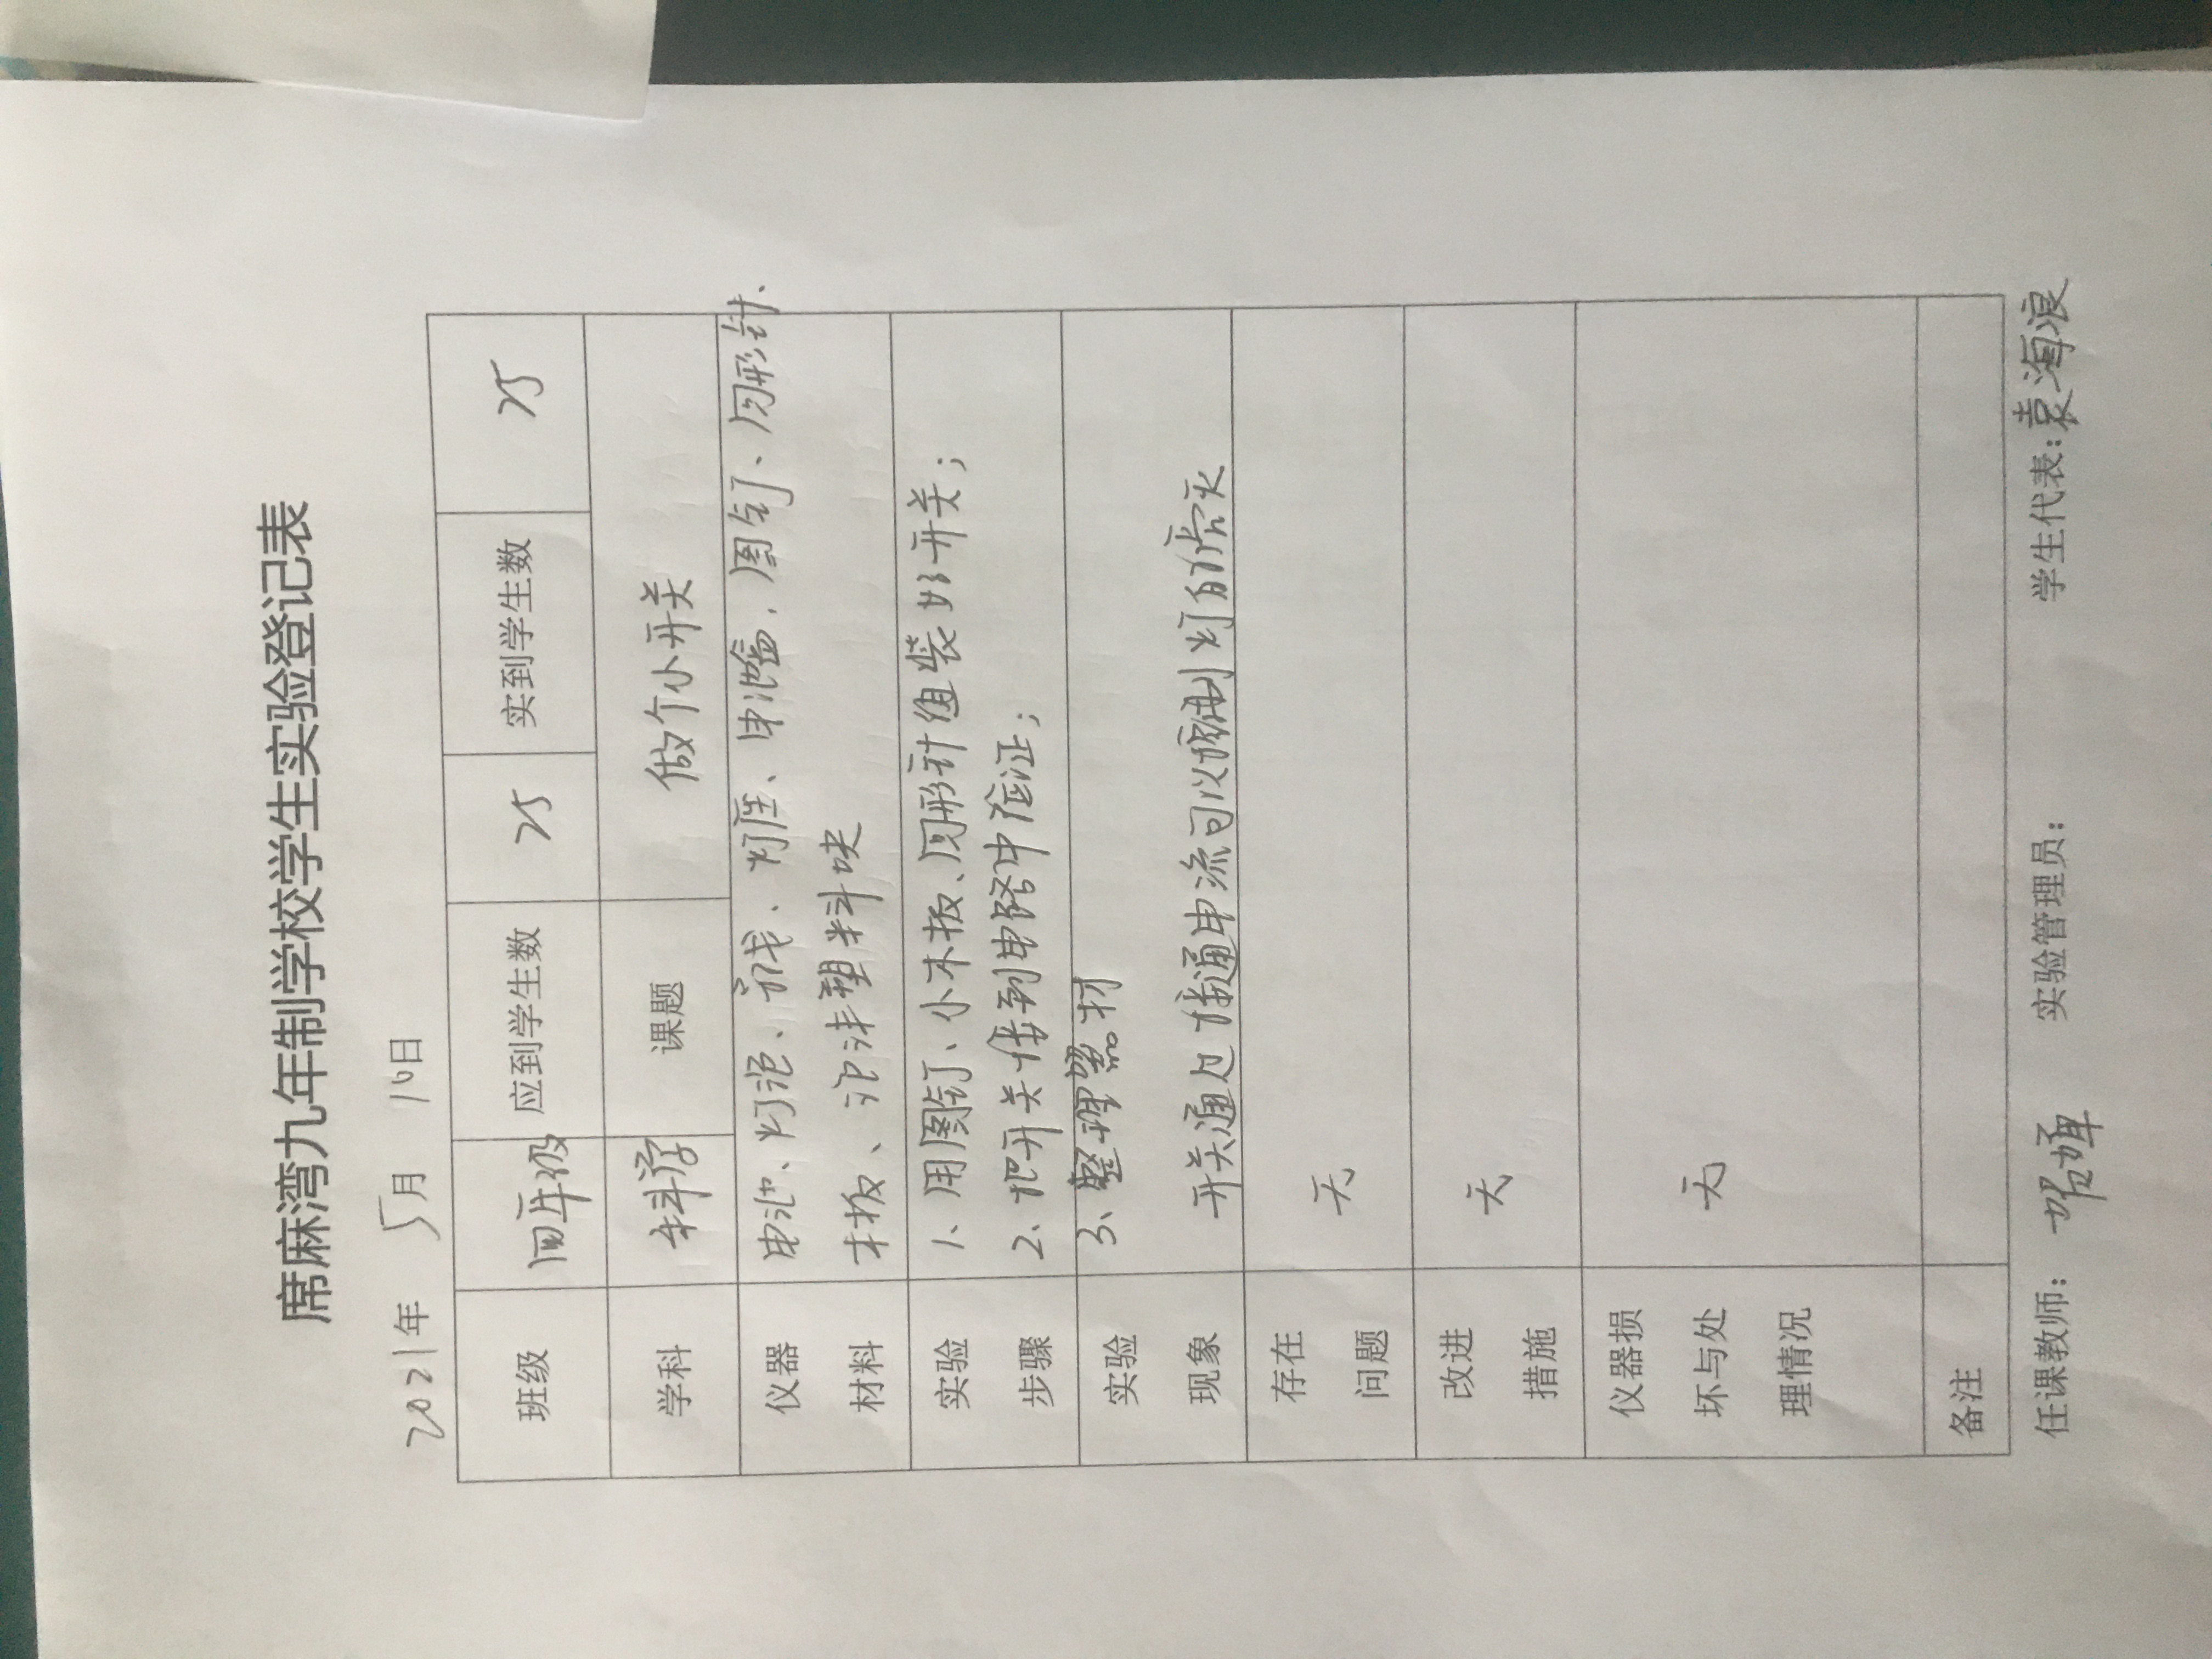 席麻湾九年制学校学生实验登记表
2021年 5月 10日
班级 四年级 应到学生数 25 实到学生数 25
学科 科学 课题 做个小开关
仪器材料 电池、灯泡、导线、灯座、电池盒、图钉、回形针、
木板、泡沫塑料块
实验步骤 1、用图钉、小木板、回形针组装好开关;
2、把开关接到电路中验证;
3、整理器材
实验现象 开关通过接通电流可以控制灯的亮灭
存在问题 无
改进措施 无
仪器损坏与处理情况 无
备注
任课教师: 实验管理员: 学生代表:袁海浪